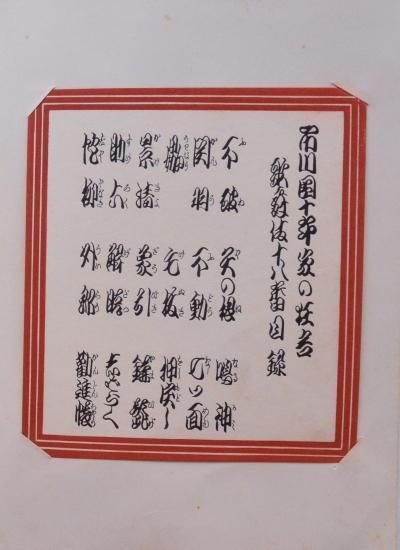 市川団十郎家の狂言
歌舞伎十八番目録
不破 矢の根 鳴神
関羽 不動 七つ面
嫐 毛抜 押戻し
景清 象引 鎌髭
助六 解脱 しばらく
蛇柳 外郎 勧進帳